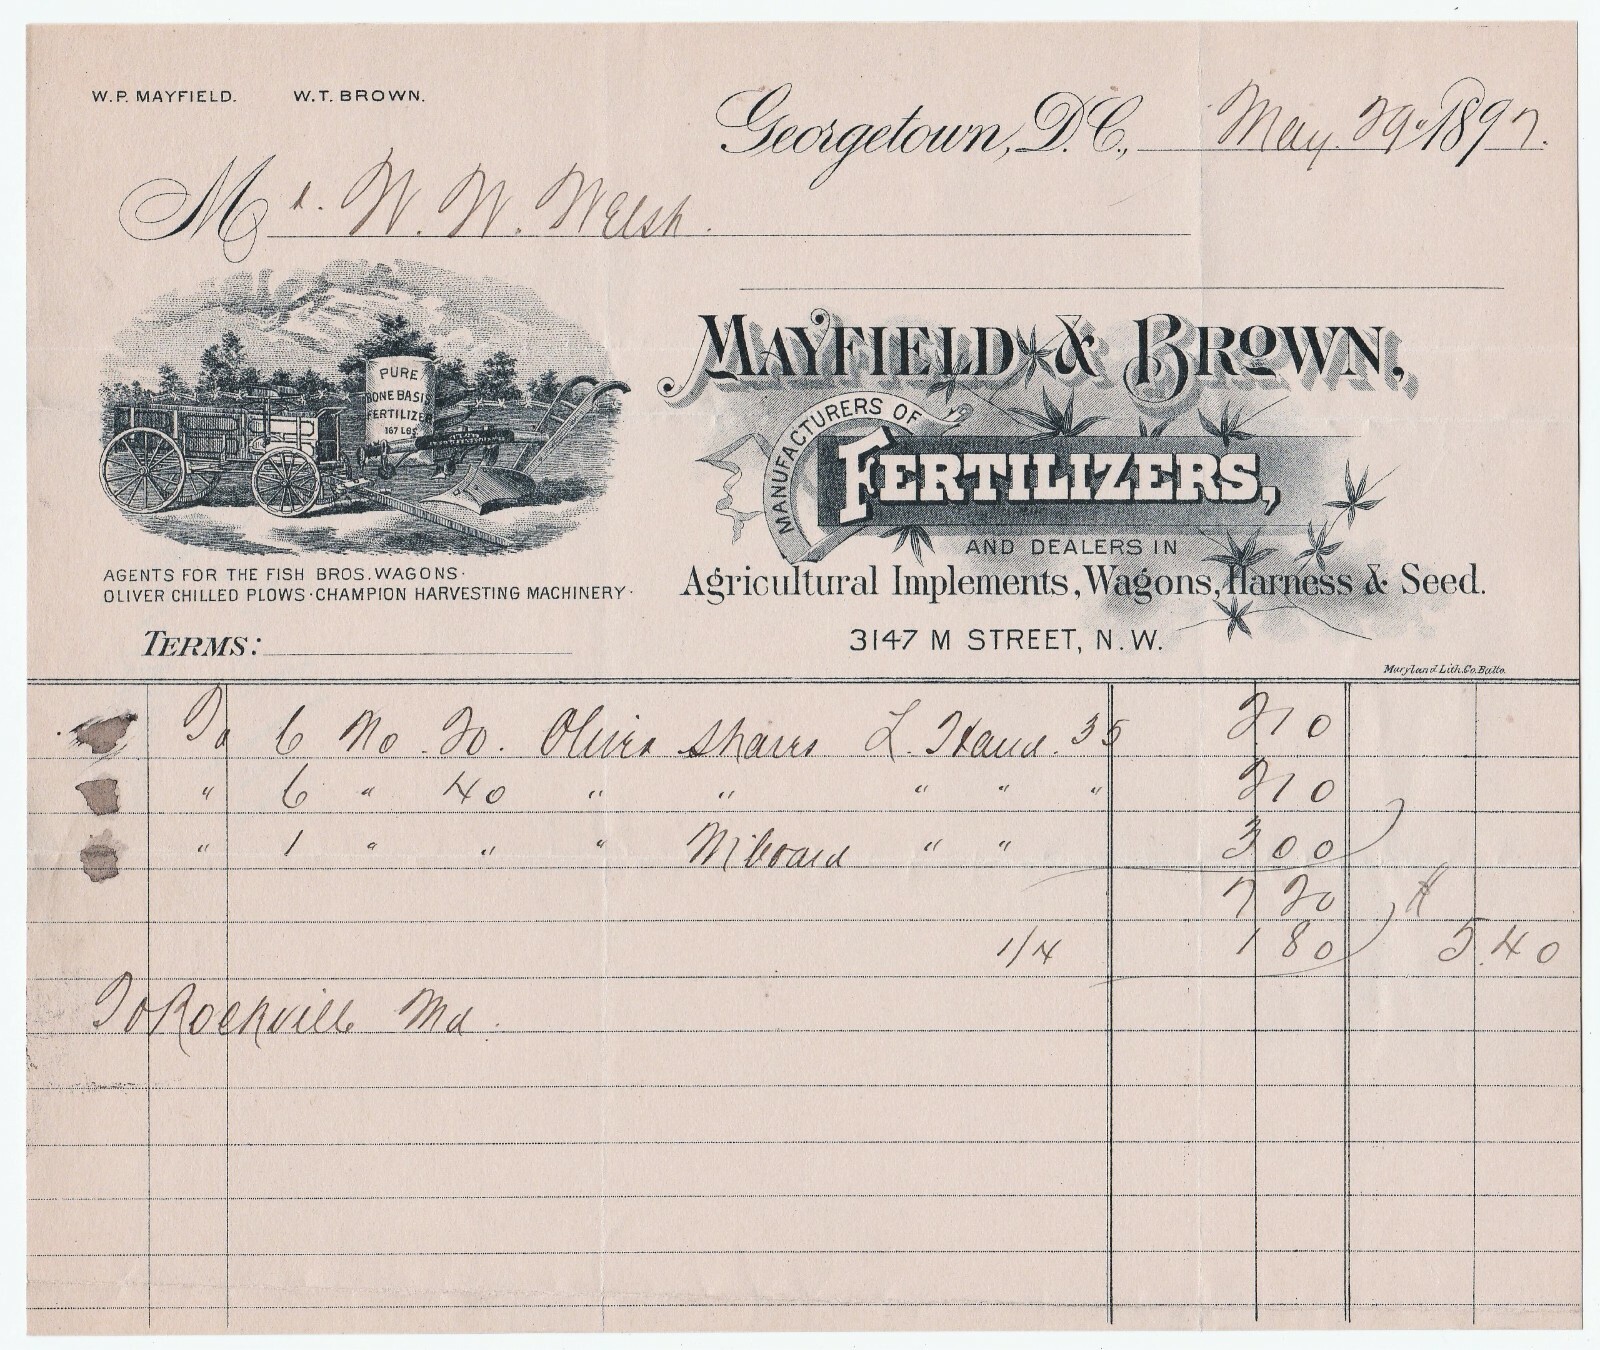 W.P. MAYFIELD. W.T. BROWN.
Georgetown, D.C., May. 29 1897.
Mr. W. W. Welsh.
MAYFIELD & BROWN,
MANUFACTURERS OF
FERTILIZERS,
AND DEALERS IN
Agricultural Implements, Wagons, Harness & Seed.
3147 M STREET, N.W.
Maryland Lith. Co. Balto.
PURE
BONE BASIS
FERTILIZE
167 LBS
AGENTS FOR THE FISH BROS. WAGONS·
OLIVER CHILLED PLOWS·CHAMPION HARVESTING MACHINERY·
TERMS:
To 6 No. 20. Oliver shares L. Hand. 35 2 10
" 6 " 40 " " " " " 2 10
" 1 " " " M board " " 3 00
7 20
1/4 1 80 $ 5.40
To Rockville Md.